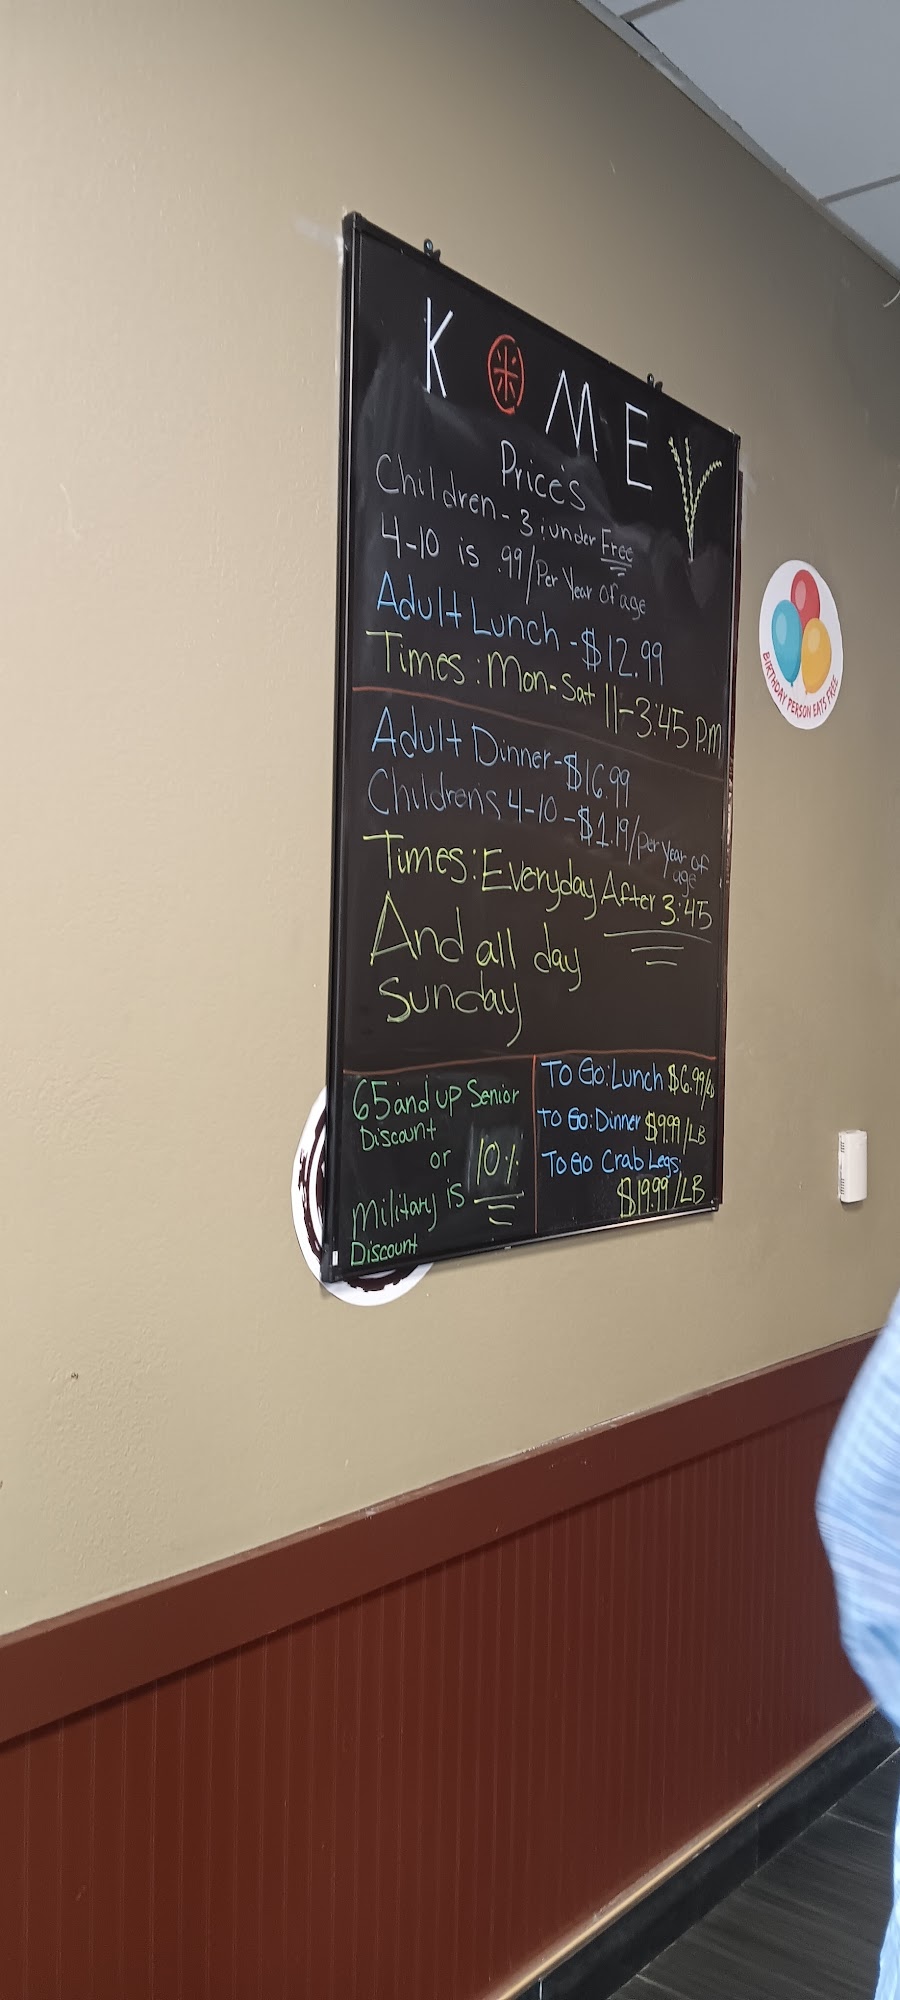 K米ME
Price's
Children - 3 & under Free
4-10 is .99/Per Year of age
Adult Lunch - $12.99
Times: Mon-Sat 11-3:45 P.M
Adult Dinner - $16.99
Children's 4-10 - $1.19/per year of
age
Times: Everyday After 3:45
And all day
sunday
65 and up Senior
Discount
or 10%
Military is
Discount
To Go: Lunch $6.99/LB
To Go: Dinner $9.99/LB
To Go Crab Legs:
$19.99/LB
BIRTHDAY PERSON EATS FREE